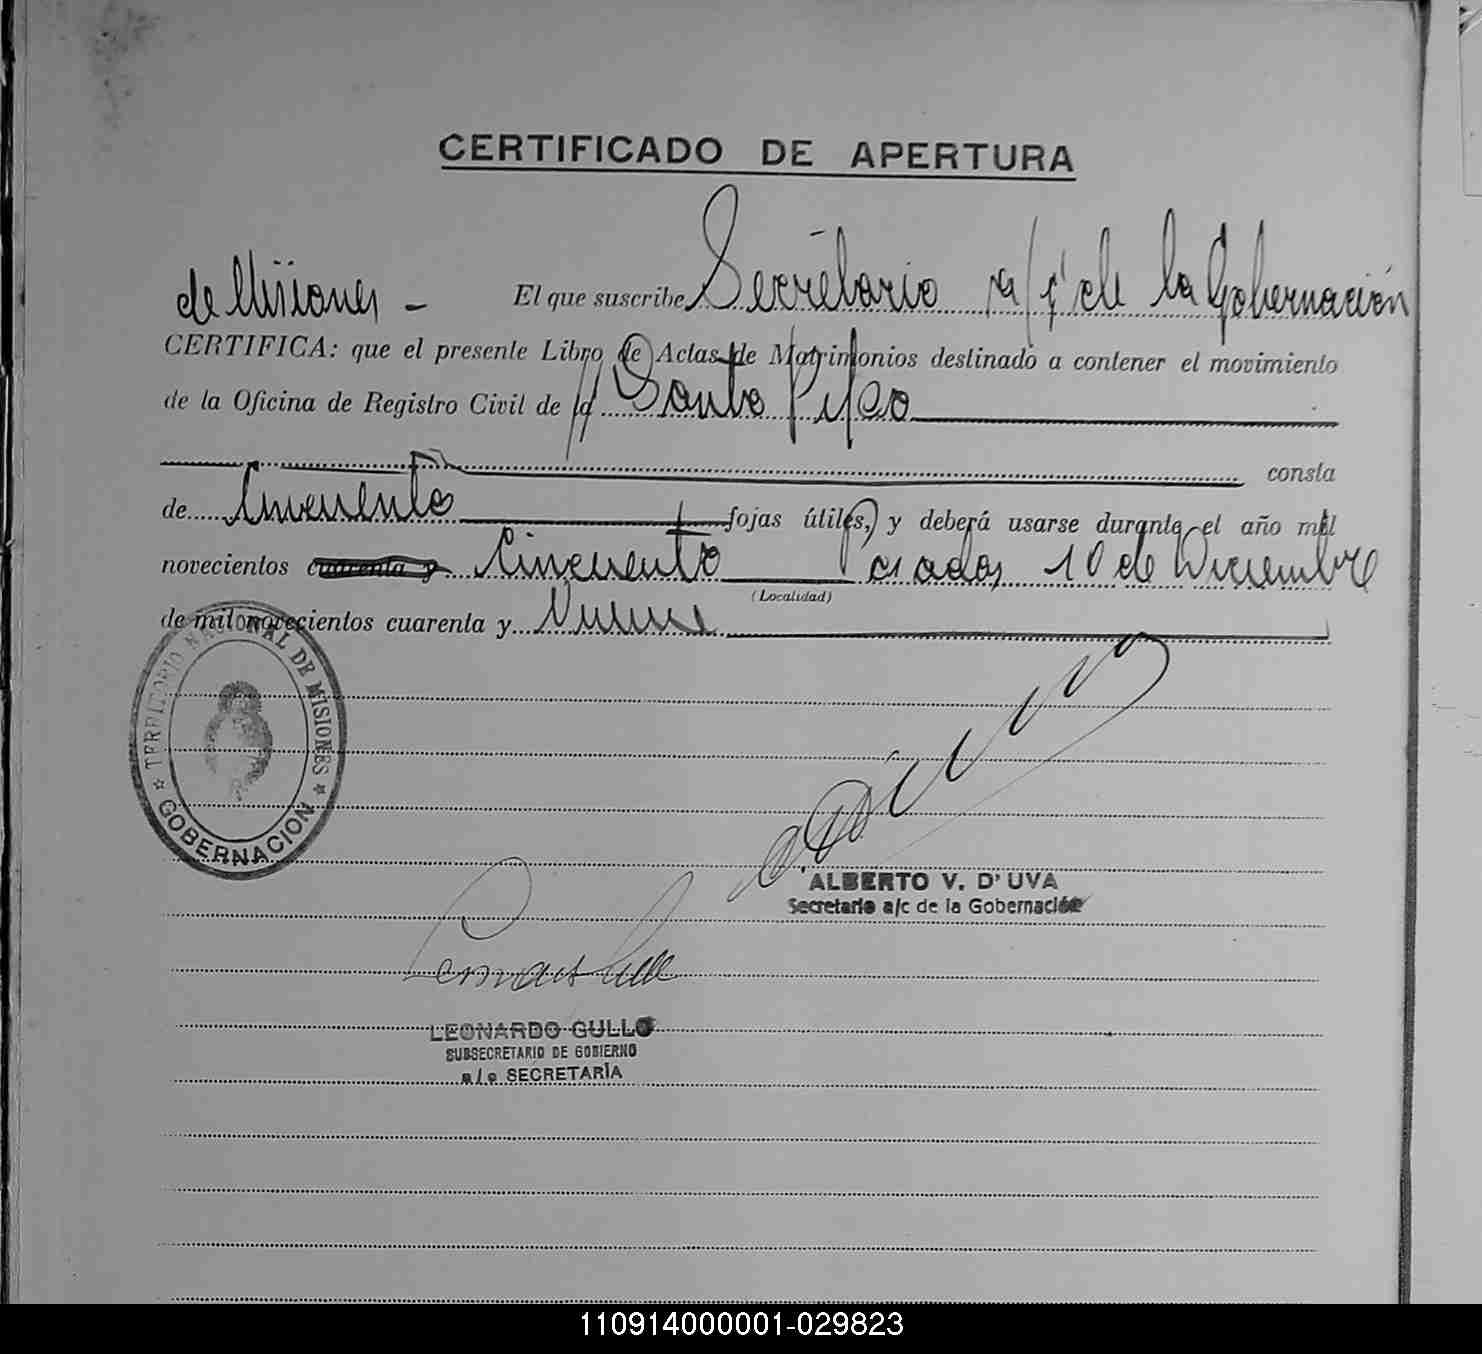 CERTIFICADO DE APERTURA
El que suscribe Secretario a/c de la Gobernación
de Misiones -
CERTIFICA: que el presente Libro de Actas de Matrimonios destinado a contener el movimiento
de la Oficina de Registro Civil de Santo Pipo
consta
de Cincuenta fojas útiles, y deberá usarse durante el año mil
novecientos cuarenta y Cincuenta Posadas 10 de Diciembre
(Localidad)
de mil novecientos cuarenta y Nueve
TERRITORIO NACIONAL DE MISIONES
GOBERNACION
ALBERTO V. D'UVA
Secretario a/c de la Gobernación
Leonardo Gullo
LEONARDO GULLO
SUBSECRETARIO DE GOBIERNO
a/c SECRETARÍA
110914000001-029823